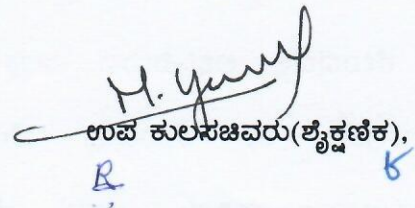 ಉಪ ಕುಲಸಚಿವರು(ಶೈಕ್ಷಣಿಕ),